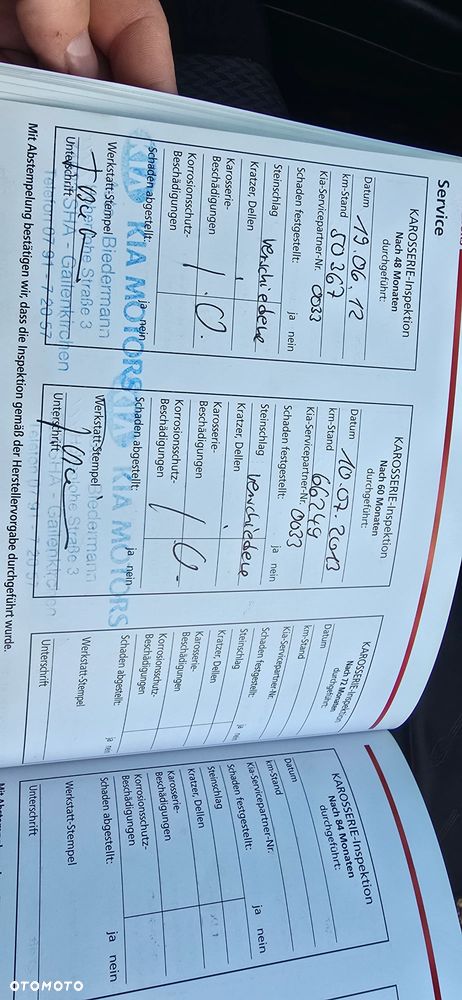 Service
KAROSSERIE-Inspektion
Nach 48 Monaten
durchgeführt:
Datum 19.06.12
km-Stand 50367
Kia-Servicepartner-Nr. 0033
Schaden festgestellt: ja nein
Steinschlag verschiedene
Kratzer, Dellen
Karosserie-
Beschädigungen
Korrosionsschutz-
Beschädigungen
i.O.
Schaden abgestellt: ja nein
KIA MOTORS
Werkstatt-Stempel Biedermann
Straße 3
Unterschrift SHA - Gailenkirchen
Telefon 07 91 - 7 20 57
KAROSSERIE-Inspektion
Nach 60 Monaten
durchgeführt:
Datum 10.07.2013
km-Stand 66249
Kia-Servicepartner-Nr. 0033
Schaden festgestellt: ja nein
Steinschlag verschiedene
Kratzer, Dellen
Karosserie-
Beschädigungen
Korrosionsschutz-
Beschädigungen
i.O.
Schaden abgestellt: ja nein
KIA MOTORS
Werkstatt-Stempel Biedermann
Straße 3
Unterschrift SHA - Gailenkirchen
KAROSSERIE-Inspektion
Nach 72 Monaten
durchgeführt:
Datum
km-Stand
Kia-Servicepartner-Nr.
Schaden festgestellt: ja nein
Steinschlag
Kratzer, Dellen
Karosserie-
Beschädigungen
Korrosionsschutz-
Beschädigungen
Schaden abgestellt: ja nein
Werkstatt-Stempel
Unterschrift
Mit Abstempelung bestätigen wir, dass die Inspektion gemäß der Herstellervorgabe durchgeführt wurde.
KAROSSERIE-Inspektion
Nach 84 Monaten
durchgeführt:
Datum
km-Stand
Kia-Servicepartner-Nr.
Schaden festgestellt: ja nein
Steinschlag
Kratzer, Dellen
Karosserie-
Beschädigungen
Korrosionsschutz-
Beschädigungen
Schaden abgestellt: ja nein
Werkstatt-Stempel
Unterschrift
OTOMOTO